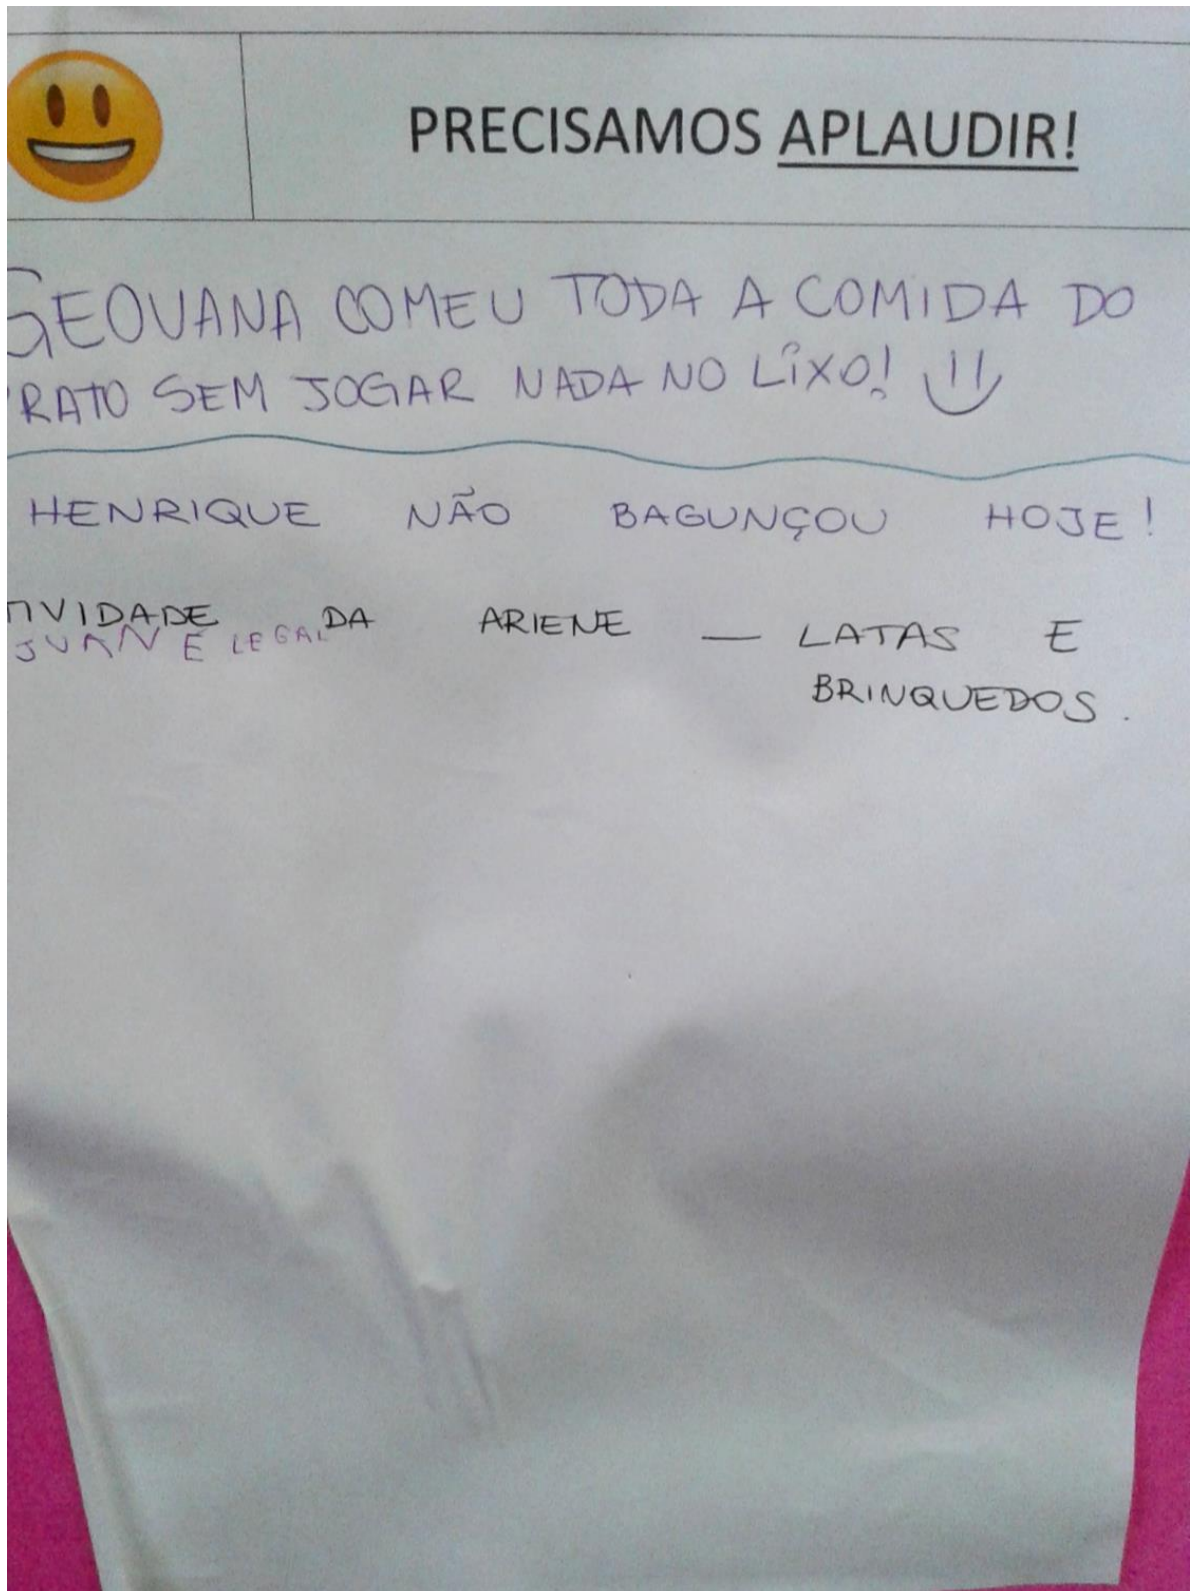 PRECISAMOS APLAUDIR!
GEOVANA COMEU TODA A COMIDA DO
RATO SEM JOGAR NADA NO LIXO!
HENRIQUE NÃO BAGUNÇOU HOJE!
TIVIDADE DA ARIENE — LATAS E
JUAN É LEGAL
BRINQUEDOS.